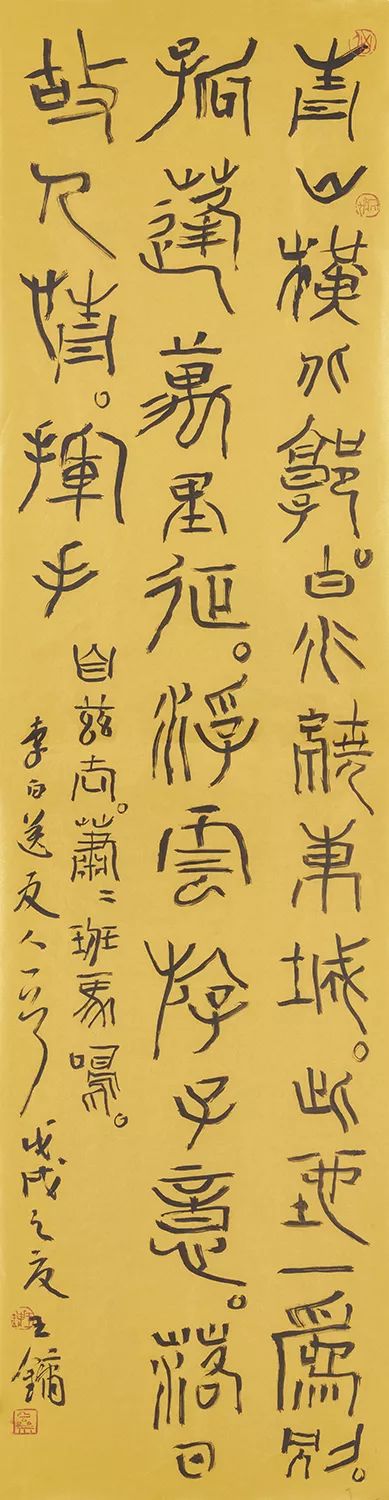 青山橫北郭。白水繞東城。此地一爲别。
孤蓬萬里征。浮雲游子意。落日
故人情。揮手
自茲去。蕭〻班馬鳴。
李白送友人一首 戊戌之夏 王鏞